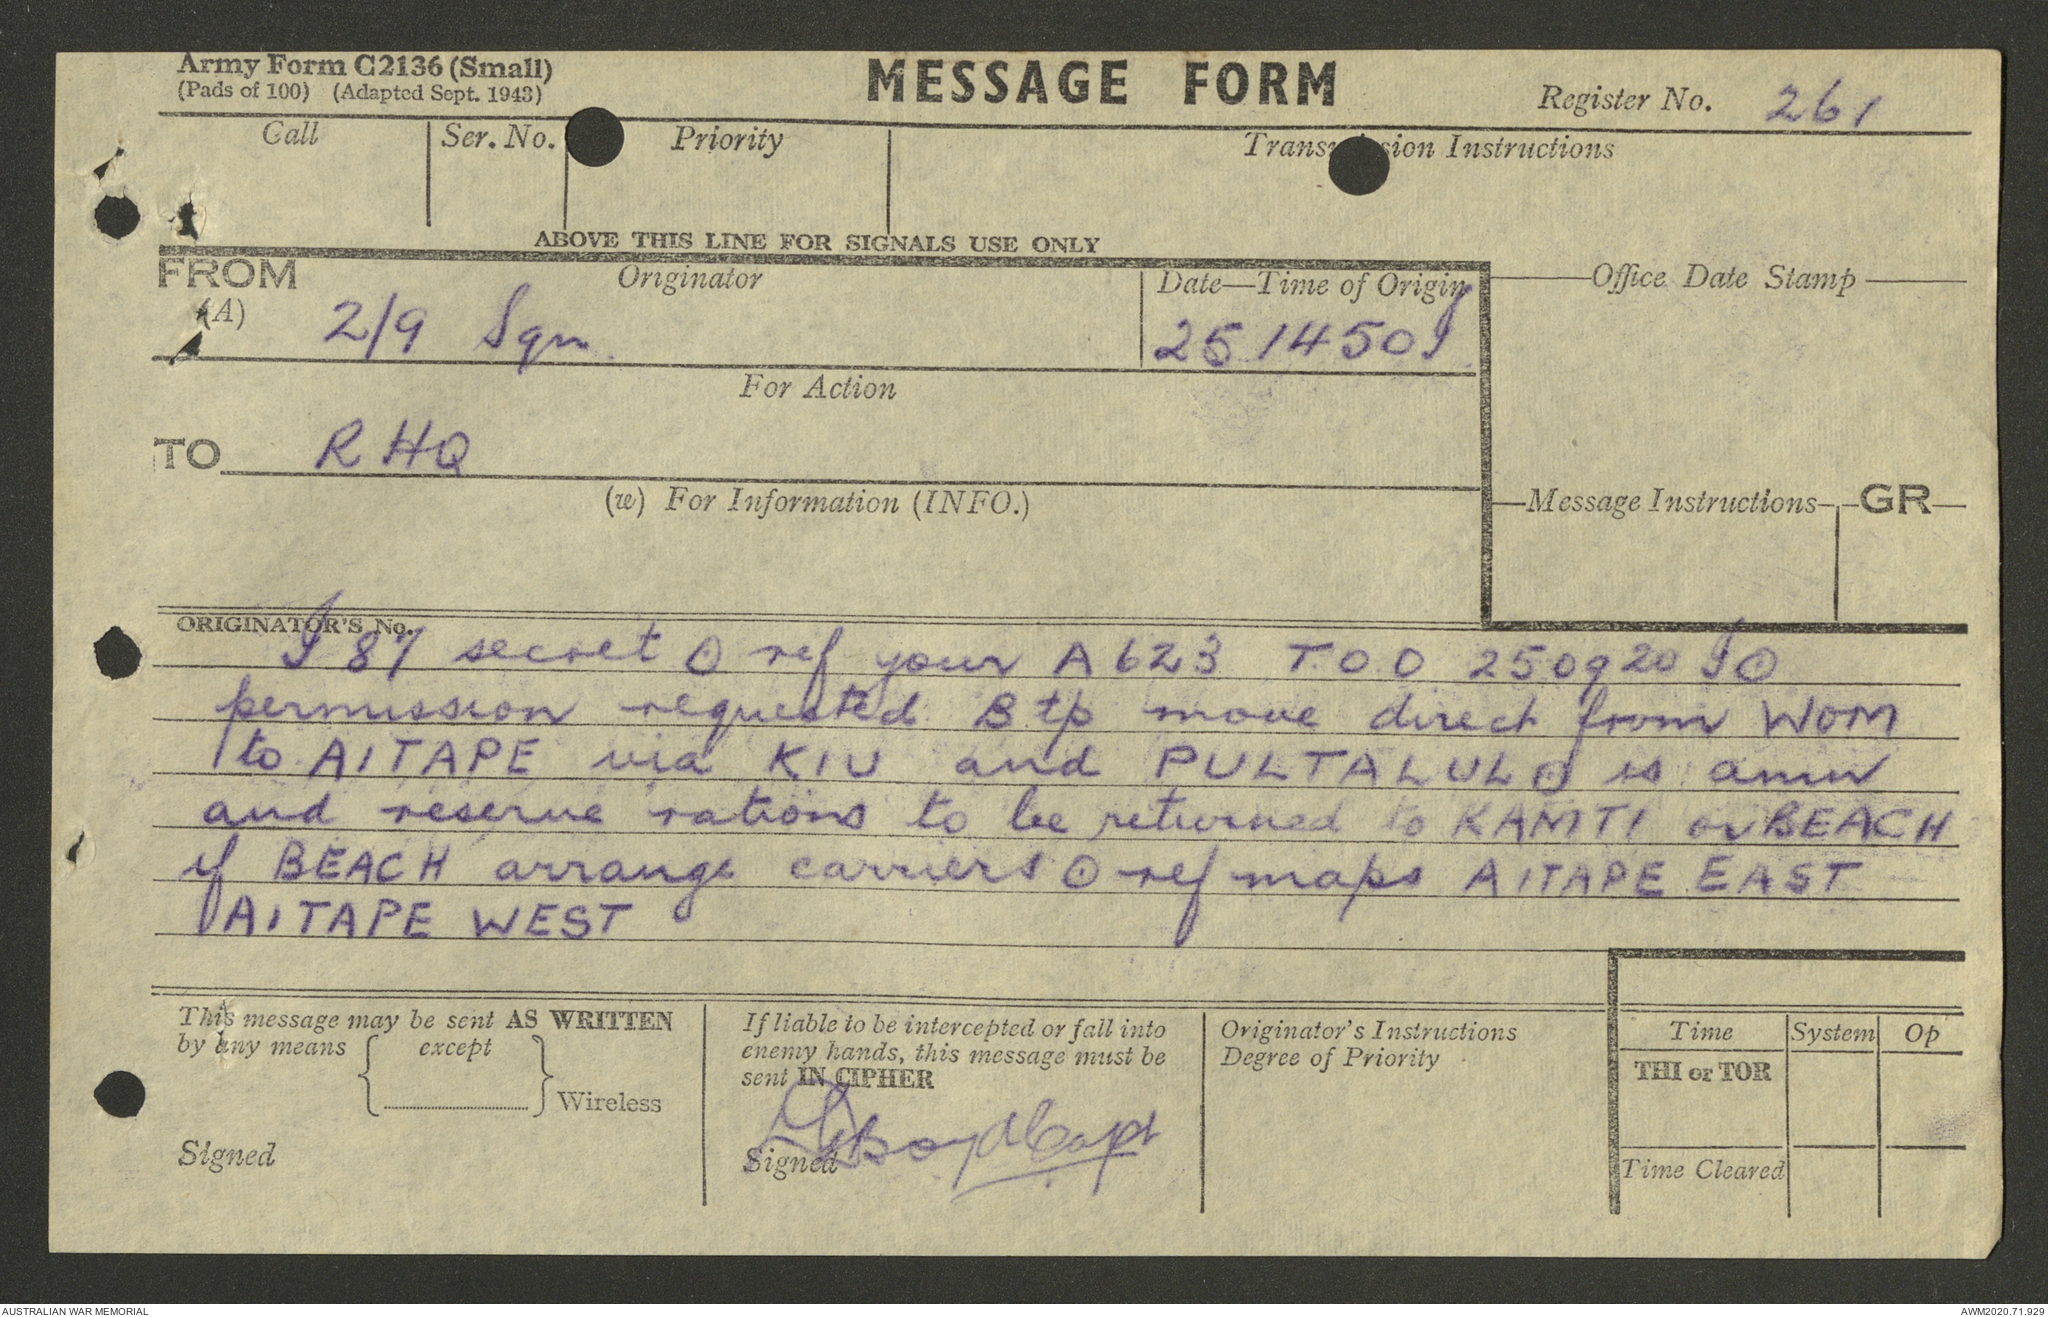 Army Form C2136 (Small)
(Pads of 100) (Adapted Sept. 1943)
MESSAGE FORM
Register No. 261
Call
Ser. No.
Priority
Transmission Instructions
ABOVE THIS LINE FOR SIGNALS USE ONLY
FROM
(A)
Originator
2/9 Sqn.
Date—Time of Origin
251450I
Office Date Stamp
For Action
TO RHQ
(w) For Information (INFO.)
Message Instructions
GR
ORIGINATOR'S No.
I 87 secret ⊙ ref your A623 TOO 250920I ⊙
permission requested B tp move direct from WOM
to AITAPE via KIU and PULTALUL ⊙ is amn
and reserve rations to be returned to KAMTI or BEACH
if BEACH arrange carriers ⊙ ref maps AITAPE EAST
AITAPE WEST
This message may be sent AS WRITTEN
by any means except
Wireless
Signed
If liable to be intercepted or fall into
enemy hands, this message must be
sent IN CIPHER
Signed Capt
Originator's Instructions
Degree of Priority
Time
System
Op
THI or TOR
Time Cleared
AUSTRALIAN WAR MEMORIAL
AWM2020.71.929